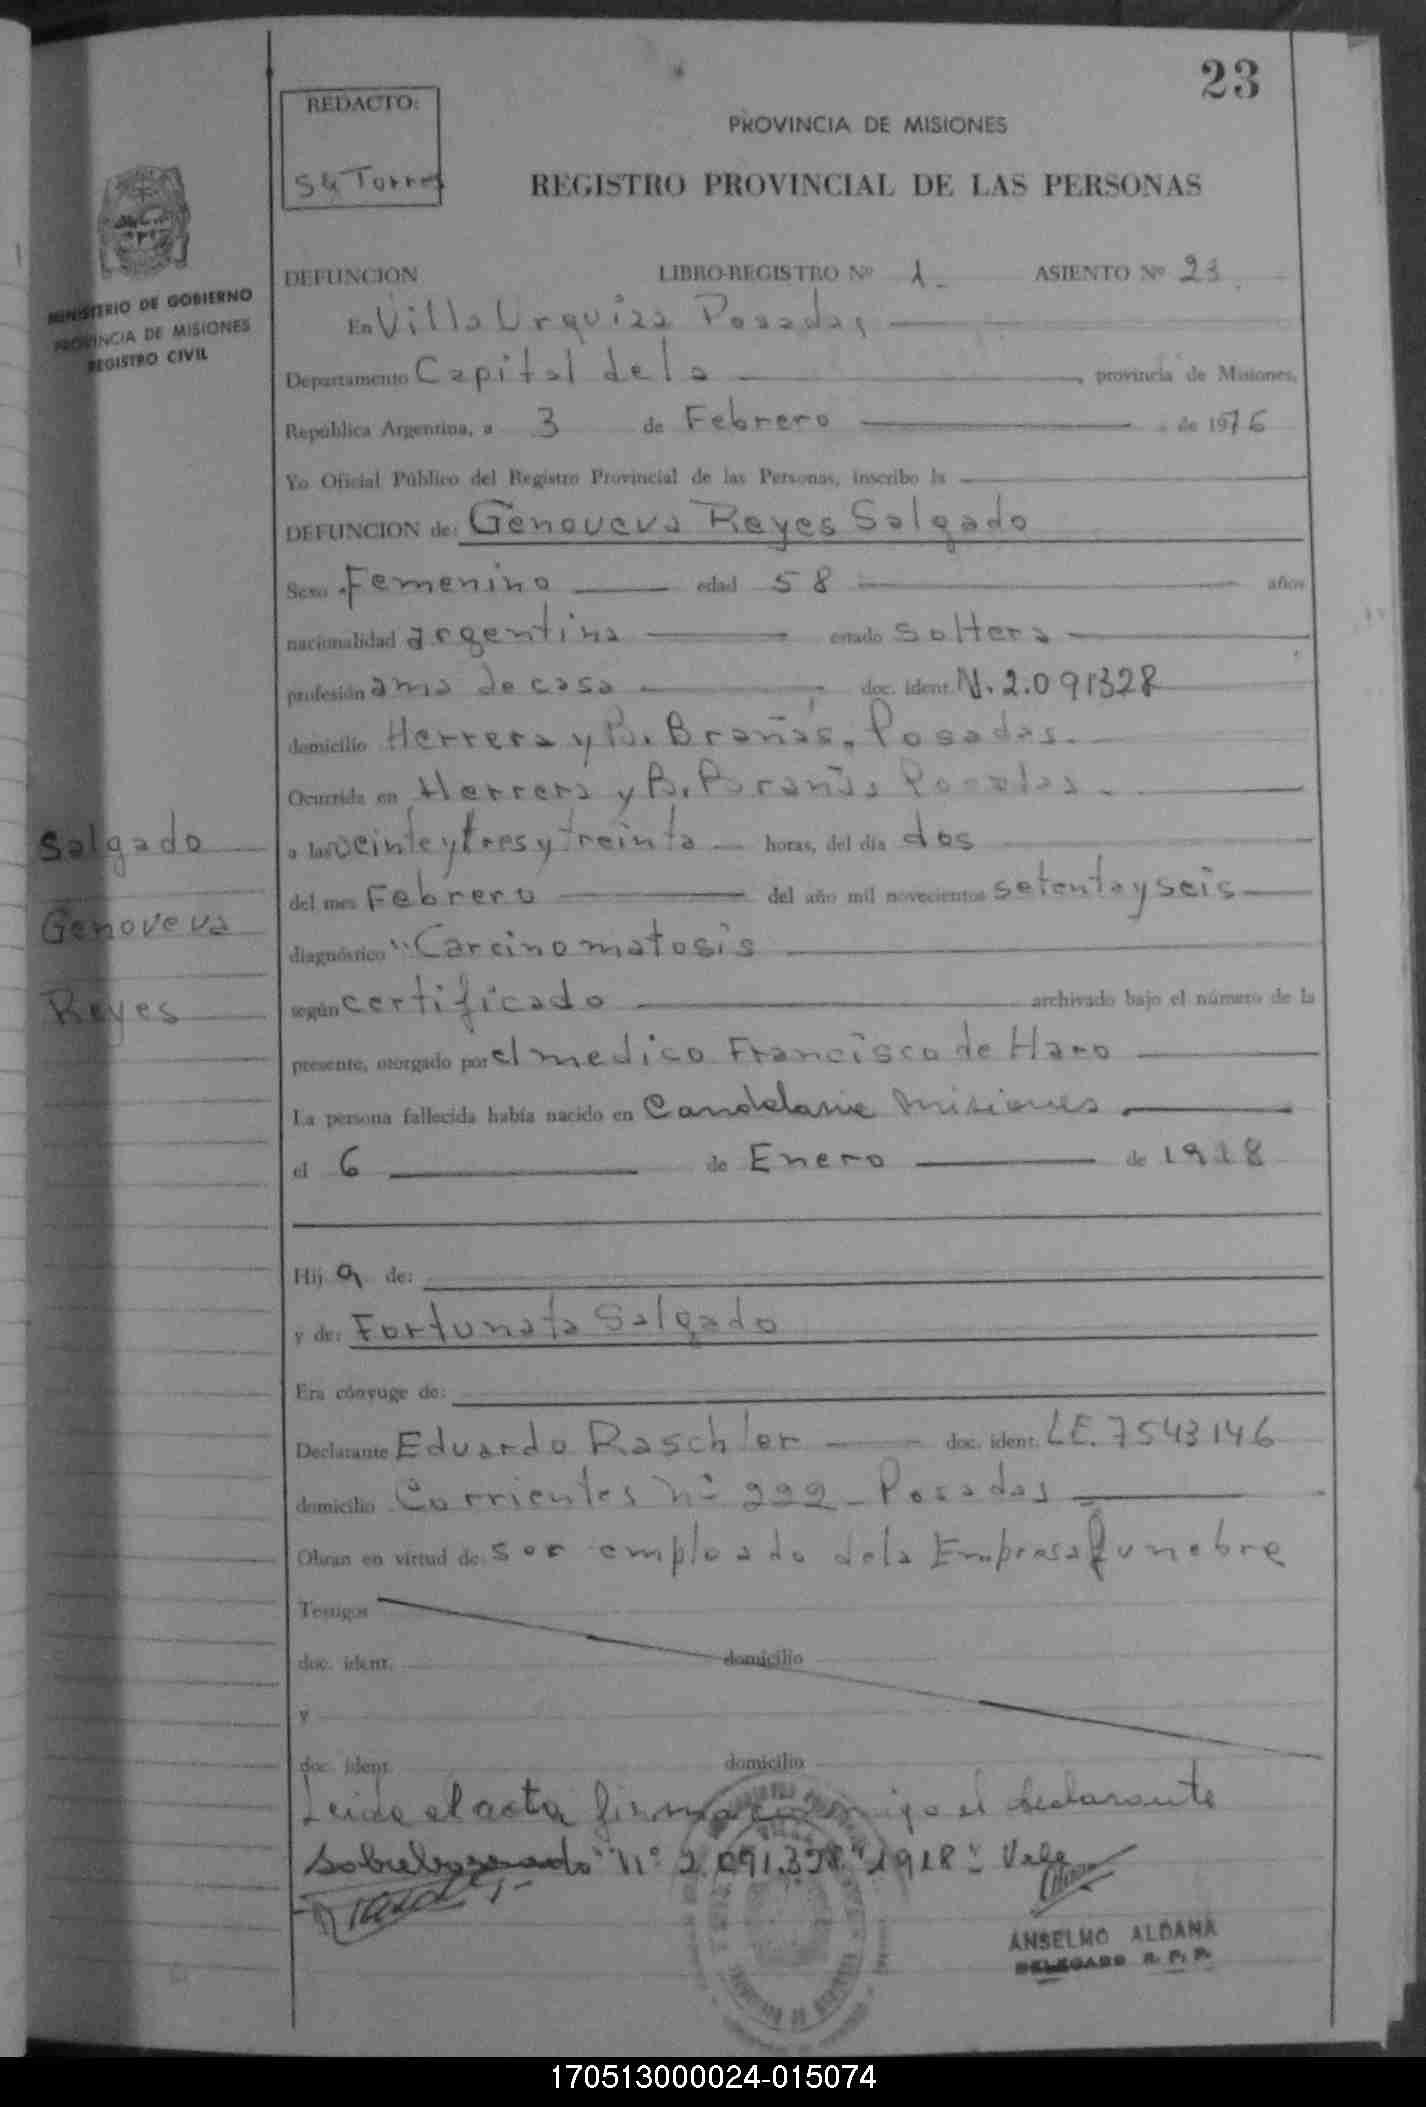 23
REDACTO:
PROVINCIA DE MISIONES
S G Torres
REGISTRO PROVINCIAL DE LAS PERSONAS
MINISTERIO DE GOBIERNO
PROVINCIA DE MISIONES
REGISTRO CIVIL
DEFUNCION LIBRO-REGISTRO Nº 1. ASIENTO Nº 23.
En Villa Urquiza Posadas
Departamento Capital de la provincia de Misiones,
República Argentina, a 3 de Febrero de 1976
Yo Oficial Público del Registro Provincial de las Personas, inscribo la
DEFUNCION de: Genoveva Reyes Salgado
Sexo Femenino edad 58 años
nacionalidad argentina estado soltera
profesión ama de casa doc. ident. N. 2.091328
domicilio Herrera y B. Brañas. Posadas.
Ocurrida en Herrera y B. Brañas Posadas.
a las veinte y tres y treinta horas, del día dos
del mes Febrero del año mil novecientos setenta y seis
diagnóstico "Carcinomatosis
según certificado archivado bajo el número de la
presente, otorgado por el medico Francisco de Haro
La persona fallecida había nacido en Candelaria Misiones
el 6 de Enero de 1918
Salgado
Genoveva
Reyes
Hij a de:
y de: Fortunata Salgado
Era cónyuge de:
Declarante Eduardo Raschler doc. ident. LE. 7543146
domicilio Corrientes nº 222 - Posadas
Obran en virtud de ser empleado de la Empresa funebre
Testigos
doc. ident. domicilio
y
doc. ident. domicilio
Leida el acta firma conmigo el declarante
Sobreborrado "Nº 2.091.328" "1918": Vale
ANSELMO ALDANA
DELEGADO R. P. P.
170513000024-015074